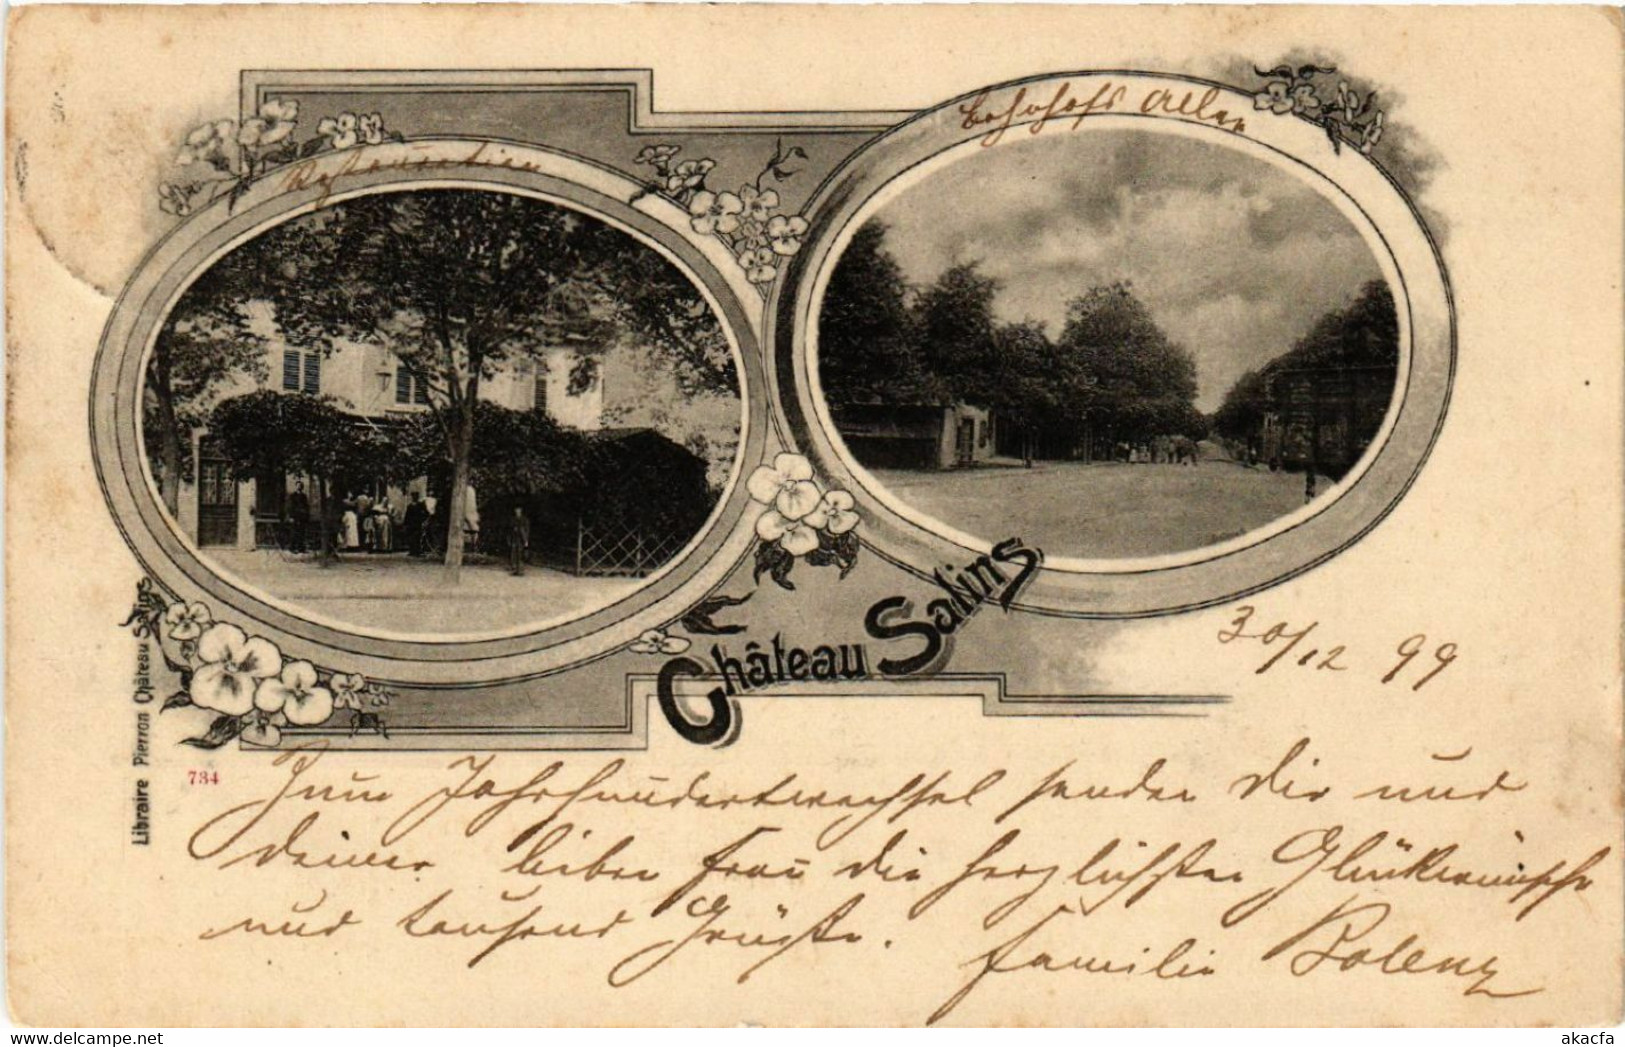 Restauration
Bahnhofs Allee
Château Salins
30/12 99
Libraire Pierron Château Salins
734
Zum Jahrhundertwechsel senden Dir und
deiner lieben Frau die herzlichsten Glückwünsche
und tausend Grüße.
Familie Polenz
akacfa